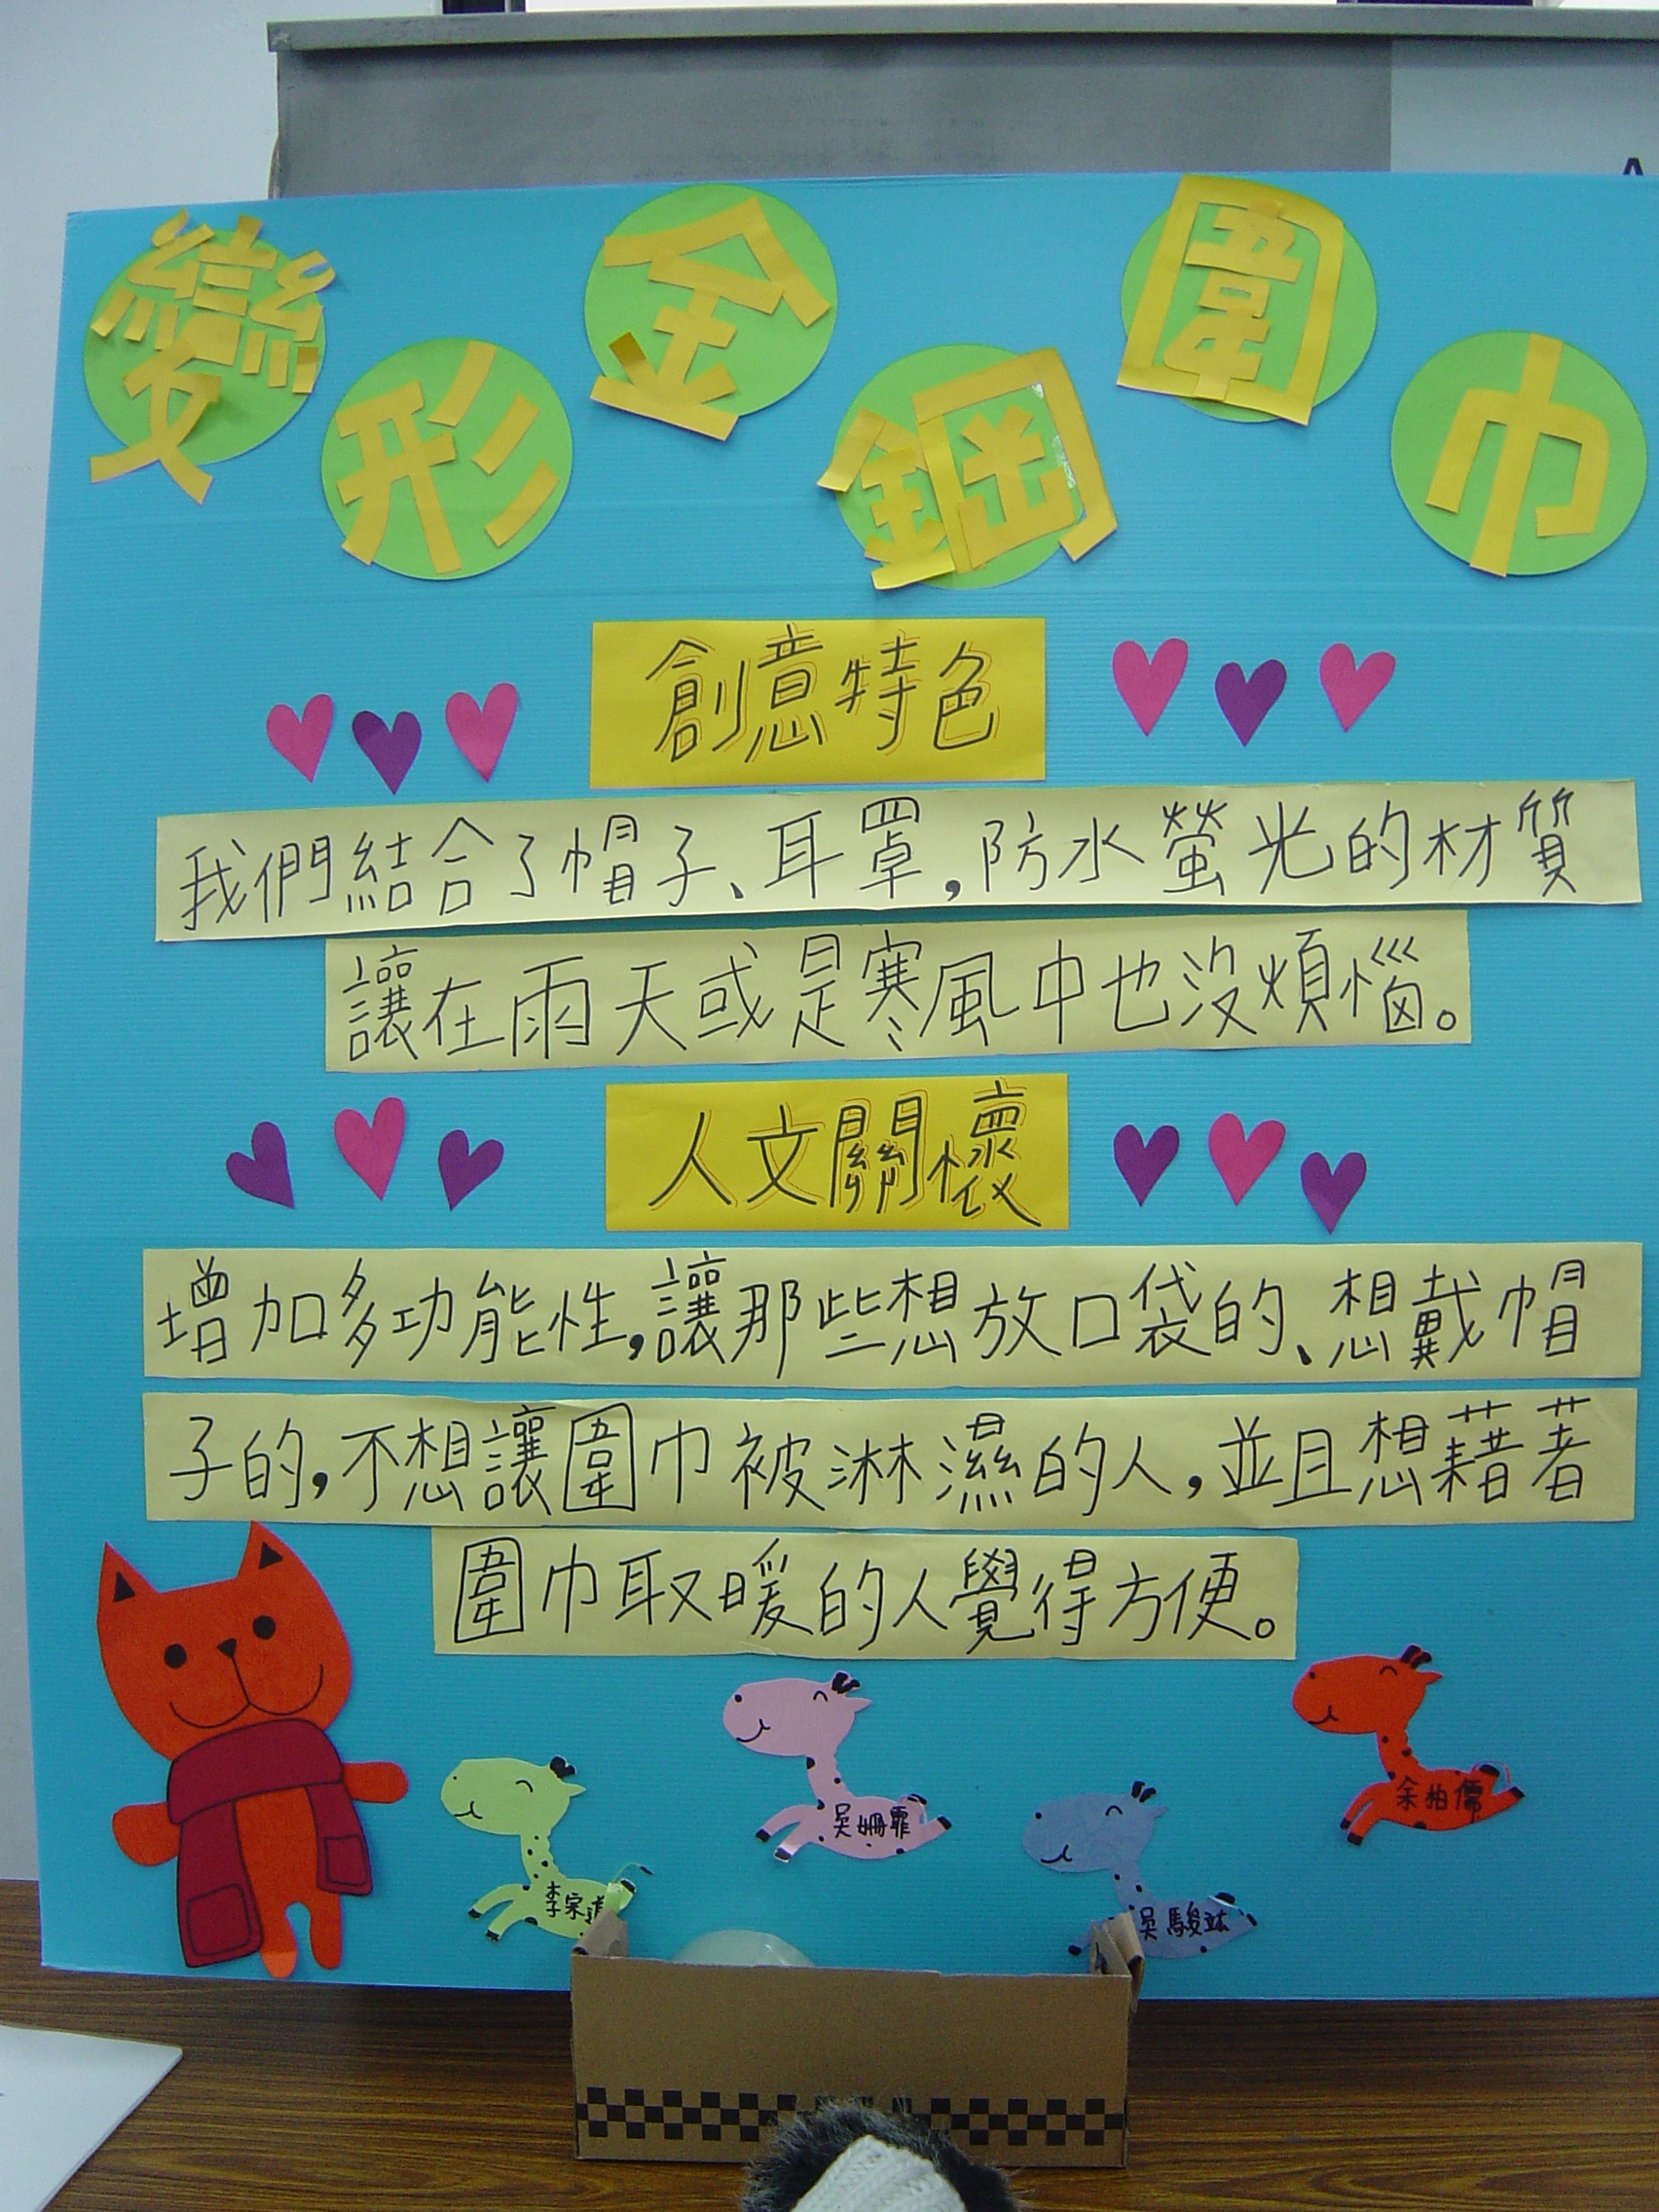 變形金鋼圍巾
創意特色
我們結合了帽子、耳罩,防水螢光的材質
讓在雨天或是寒風中也沒煩惱。
人文關懷
增加多功能性,讓那些想放口袋的、想戴帽
子的,不想讓圍巾被淋濕的人,並且想藉著
圍巾取暖的人覺得方便。
吳姍霏
余柏儒
李宗道
吳駿竑